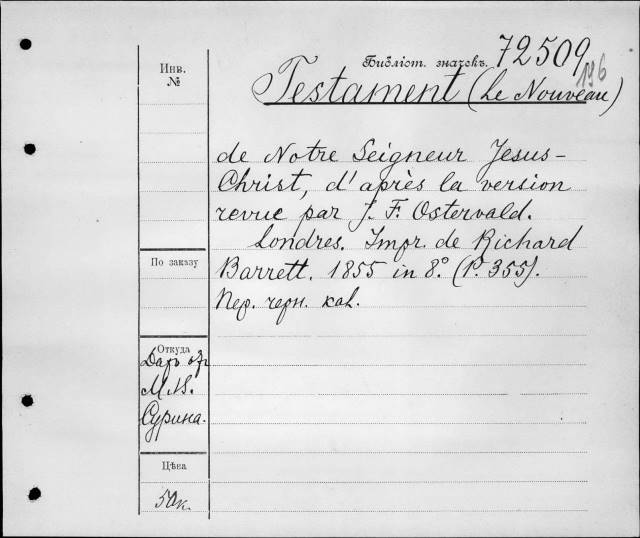 Инв.
№
Библіот. значекъ. 72509
196
Testament (Le Nouveau)
de Notre Seigneur Jesus-
Christ, d'après la version
revue par J. F. Ostervald.
Londres. Impr. de Richard
Barrett. 1855 in 8° (P. 355).
Пер. черн. кал.
По заказу
Откуда
Даръ
Сурина.
Цѣна
50к.